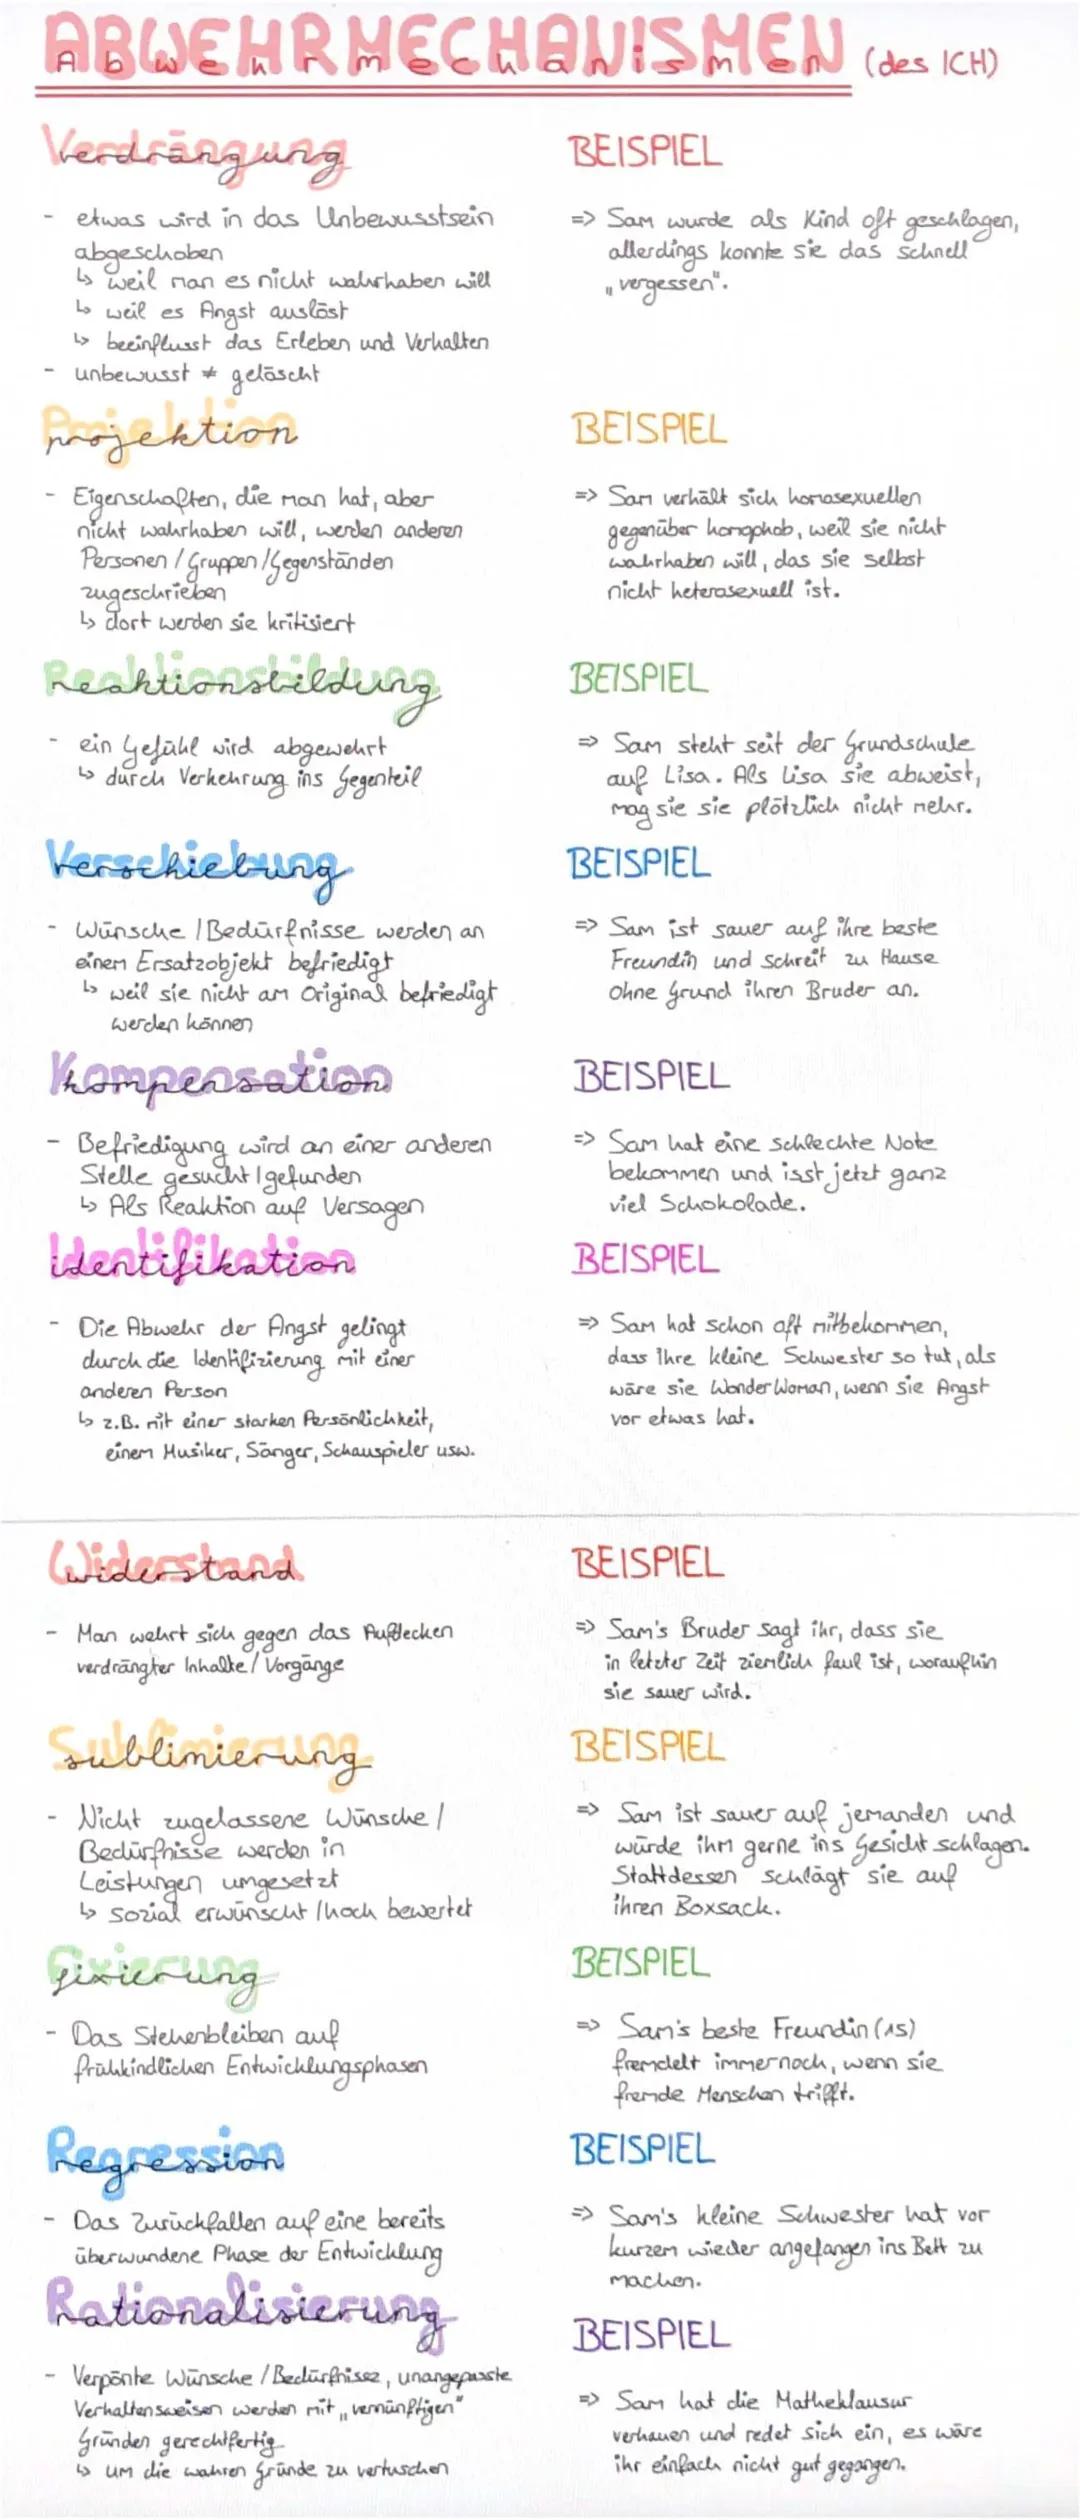 ABWEHRMECHANISMEN (des ICH)
Abwehrmechanismen
Verdrängung
- etwas wird in das Unbewusstsein
abgeschoben
↳ weil man es nicht wahrhaben will
↳ weil es Angst auslöst
↳ beeinflusst das Erleben und Verhalten
- unbewusst ≠ gelöscht
BEISPIEL
=> Sam wurde als Kind oft geschlagen,
allerdings konnte sie das schnell
„vergessen".
Projektion
- Eigenschaften, die man hat, aber
nicht wahrhaben will, werden anderen
Personen / Gruppen / Gegenständen
zugeschrieben
↳ dort werden sie kritisiert
BEISPIEL
=> Sam verhält sich homosexuellen
gegenüber homophob, weil sie nicht
wahrhaben will, das sie selbst
nicht heterosexuell ist.
Reaktionsbildung
- ein Gefühl wird abgewehrt
↳ durch Verkehrung ins Gegenteil
BEISPIEL
=> Sam steht seit der Grundschule
auf Lisa. Als Lisa sie abweist,
mag sie sie plötzlich nicht mehr.
Verschiebung
- Wünsche / Bedürfnisse werden an
einem Ersatzobjekt befriedigt
↳ weil sie nicht am Original befriedigt
werden können
BEISPIEL
=> Sam ist sauer auf ihre beste
Freundin und schreit zu Hause
ohne Grund ihren Bruder an.
Kompensation
- Befriedigung wird an einer anderen
Stelle gesucht / gefunden
↳ Als Reaktion auf Versagen
BEISPIEL
=> Sam hat eine schlechte Note
bekommen und isst jetzt ganz
viel Schokolade.
Identifikation
- Die Abwehr der Angst gelingt
durch die Identifizierung mit einer
anderen Person
↳ z.B. mit einer starken Persönlichkeit,
einem Musiker, Sänger, Schauspieler usw.
BEISPIEL
=> Sam hat schon oft mitbekommen,
dass ihre kleine Schwester so tut, als
wäre sie Wonder Woman, wenn sie Angst
vor etwas hat.
Widerstand
- Man wehrt sich gegen das Aufdecken
verdrängter Inhalte / Vorgänge
BEISPIEL
=> Sam's Bruder sagt ihr, dass sie
in letzter Zeit ziemlich faul ist, woraufhin
sie sauer wird.
Sublimierung
- Nicht zugelassene Wünsche /
Bedürfnisse werden in
Leistungen umgesetzt
↳ sozial erwünscht / hoch bewertet
BEISPIEL
=> Sam ist sauer auf jemanden und
würde ihm gerne ins Gesicht schlagen.
Stattdessen schlägt sie auf
ihren Boxsack.
Fixierung
- Das Stehenbleiben auf
frühkindlichen Entwicklungsphasen
BEISPIEL
=> Sam's beste Freundin (15)
fremdelt immernoch, wenn sie
fremde Menschen trifft.
Regression
- Das Zurückfallen auf eine bereits
überwundene Phase der Entwicklung
BEISPIEL
=> Sam's kleine Schwester hat vor
kurzem wieder angefangen ins Bett zu
machen.
Rationalisierung
- Verpönte Wünsche / Bedürfnisse, unangepasste
Verhaltensweisen werden mit „vernünftigen"
Gründen gerechtfertig
↳ um die wahren Gründe zu vertuschen
BEISPIEL
=> Sam hat die Matheklausur
verhauen und redet sich ein, es wäre
ihr einfach nicht gut gegangen.